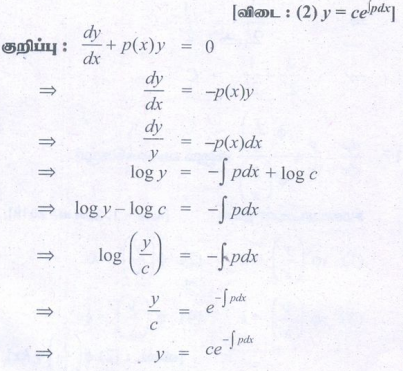 [விடை : (2) y = ce^∫pdx]
குறிப்பு : dy/dx + p(x)y = 0
⇒ dy/dx = –p(x)y
⇒ dy/y = –p(x)dx
⇒ log y = –∫ pdx + log c
⇒ log y – log c = –∫ pdx
⇒ log (y/c) = –∫ pdx
⇒ y/c = e^–∫ pdx
⇒ y = ce^–∫ pdx